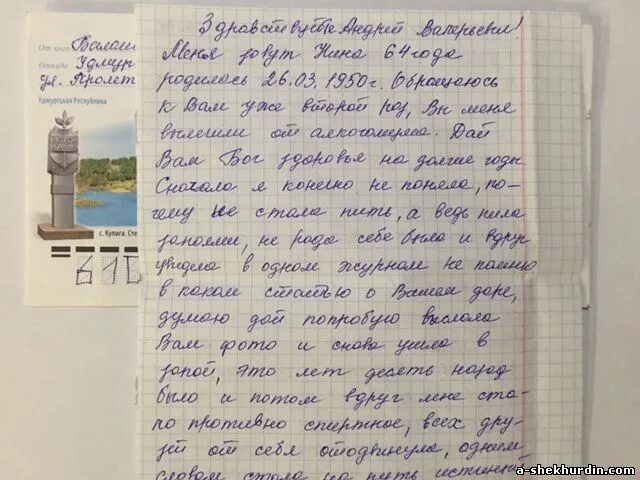 Здравствуйте Андрей Валерьевич!
Меня зовут Нина 64 года
родилась 26.03.1950г. Обращаюсь
к Вам уже второй раз, Вы меня
вылечили от алкоголизма. Дай
Вам Бог здоровья на долгие годы.
Сначала я конечно не поняла, по-
чему не стала пить, а ведь пила
запоями, не рада себе была и вдруг
увидела в одном журнале не помню
в каком статью о Вашем даре,
думаю дай попробую выслала
Вам фото и снова ушла в
запой, это лет десять назад
было и потом вдруг мне ста-
ло противно спиртное, всех дру-
зей от себя отодвинула, одним
словом стала на путь истинн
От кого Балаш
Откуда Удмур
ул. Пролет
Удмуртская Республика
с. Кулига. Сте
61
a-shekhurdin.com